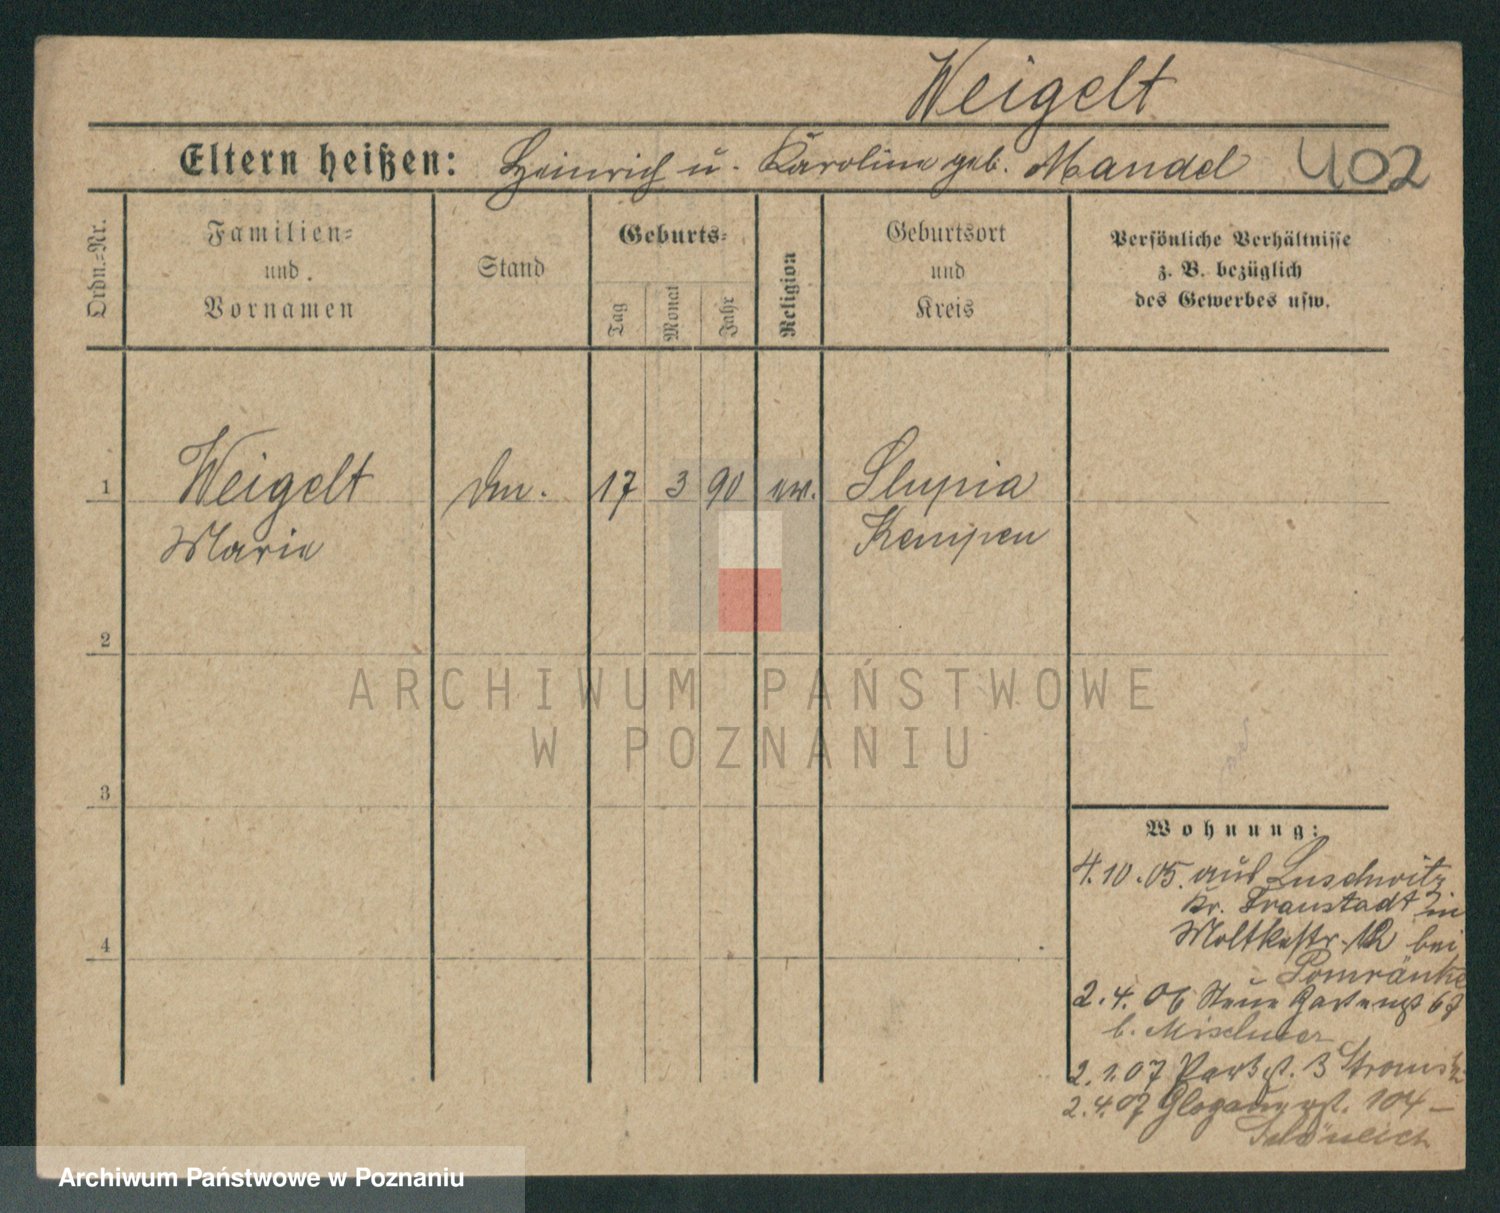 Weigelt
Eltern heißen: Heinrich u. Karoline geb. Mandel 402
Ordn.-Nr.
Familien- und Vornamen
Stand
Geburts-
Tag
Monat
Jahr
Religion
Geburtsort und Kreis
Persönliche Verhältnisse
z. B. bezüglich
des Gewerbes usw.
1 Weigelt 17 3 90 ev. Slupia
Marie Kempen
2
3
4
Wohnung:
4.10.05. aus Luschwitz
Kr. Fraustadt in
Moltkestr. 12 bei
Pomränke
2.4.06 Neue Gartenst
b.
2.1.07 Parkst. 3
2.4.07 Glogauerst. 104 –
ARCHIWUM PAŃSTWOWE
W POZNANIU
Archiwum Państwowe w Poznaniu